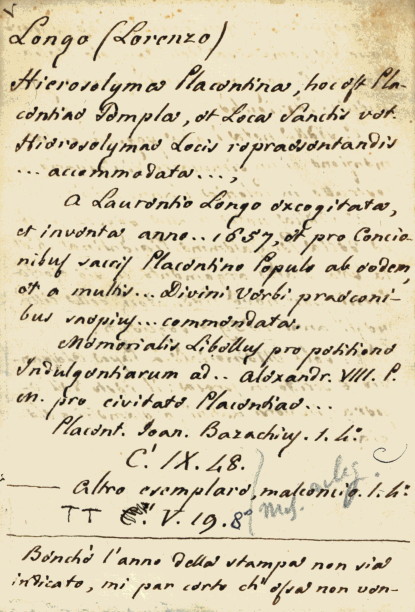 Longo (Lorenzo)
Hierosolyma Placentina, hoc est Pla-
centiae Templa, et Loca Sanctis vet.
Hierosolymae Locis repraesentandis
... accommodata ...,
A Laurentio Longo excogitata,
et inventa anno .. 1657, et pro Concio-
nibus sacris Placentino Populo ab eodem,
et a multis ... Divini Verbi praeconi-
bus saepius ... commendata.
Memorialis Libellus pro petitione
Indulgentiarum ad .. Alexandr. VIII. P.
M. pro civitate Placentiae ...
Placent. Ioan. Bazachius. 1. 4.º
C. IX. 48.
— Altro esemplare, malconcio. 1. 4.º
TT V. 19. 8º
Benchè l'anno della stampa non sia
indicato, mi par certo ch'essa non ven-